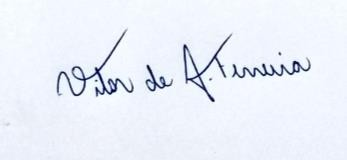 Vitor de A. Ferreira